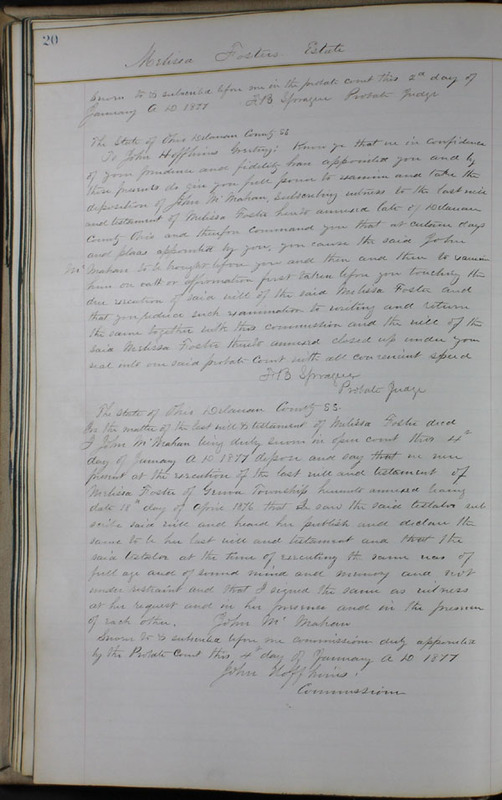 20
Melissa Fosters Estate
Sworn to & subscribed before me in the probate court this 2nd day of
January A D 1877 F B Sprague Probate Judge
The State of Ohio Delaware County SS
To John Hoffhines Greeting: Know ye that we in confidence
of your prudence and fidelity have appointed you and by
these presents do give you full power to examine and take the
deposition of John McMahan, subscribing witness to the last will
and testament of Melissa Foster hereto annexed late of Delaware
County Ohio and therefore command you that at certain days
and places appointed by you, you cause the said John
McMahan to be brought before you and then and there to examine
him on oath or affirmation first taken before you touching the
due execution of said will of the said Melissa Foster and
that you reduce such examination to writing and return
the same together with this commission and the will of the
said Melissa Foster thereto annexed closed up under your
seal into our said probate Court with all convenient speed
F B Sprague
Probate Judge
The state of Ohio Delaware County SS.
In the matter of the last will & testament of Melissa Foster decd
I John McMahan being duly sworn in open court this 4th
day of January A D 1877 depose and say that I was
present at the execution of the last will and testament of
Melissa Foster of Township hereunto annexed bearing
date 18th day of April 1876 that I saw the said testator sub
scribe said will and heard her publish and declare the
same to be her last will and testament and that the
said testator at the time of executing the same was of
full age and of sound mind and memory and not
under restraint and that I signed the same as witness
at her request and in her presence and in the presence
of each other. John McMahan
Sworn to & subscribed before me commissioner duly appointed
by the Probate Court this 4th day of January A D 1877
John Hoffhines
Commissioner